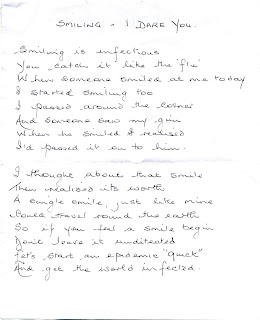 SMILING - I DARE YOU.
Smiling is infectious
You catch it like the 'flu'
When someone smiled at me today
I started smiling too
I passed around the corner
And someone saw my grin
When he smiled I realised
I'd passed it on to him.
I thought about that smile
Then realised its worth
A single smile, just like mine
Could travel round the earth
So if you feel a smile begin
Don't leave it undetected
Let's start an epidemic "quick"
And get the world infected.